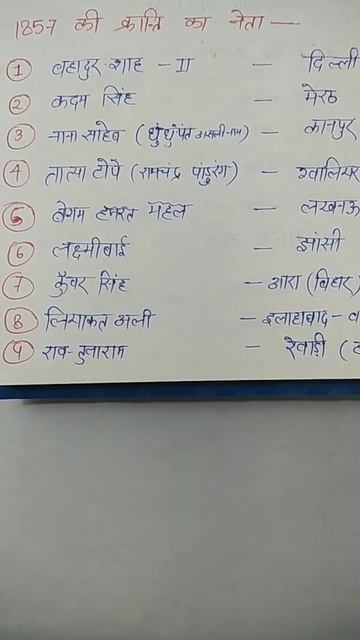 1857 की क्रान्ति का नेता —
1 बहादुर शाह - II — दिल्ली
2 कदम सिंह — मेरठ
3 नाना साहेब (धुंधुंपंत असली नाम) — कानपुर
4 तात्या टोपे (रामचंद्र पांडुरंग) — ग्वालियर
5 बेगम हजरत महल — लखनऊ
6 लक्ष्मीबाई — झांसी
7 कुँवर सिंह — आरा (बिहार)
8 लियाकत अली — इलाहाबाद -
9 राव तुलाराम — रेवाड़ी (